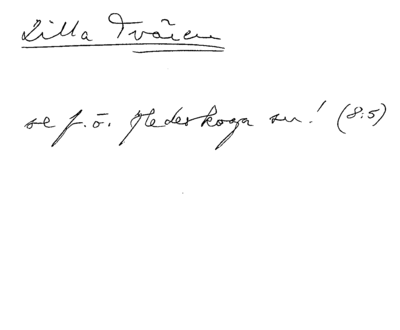 Lilla Tvären
se f.ö. Hederskoga sn! (8:5)